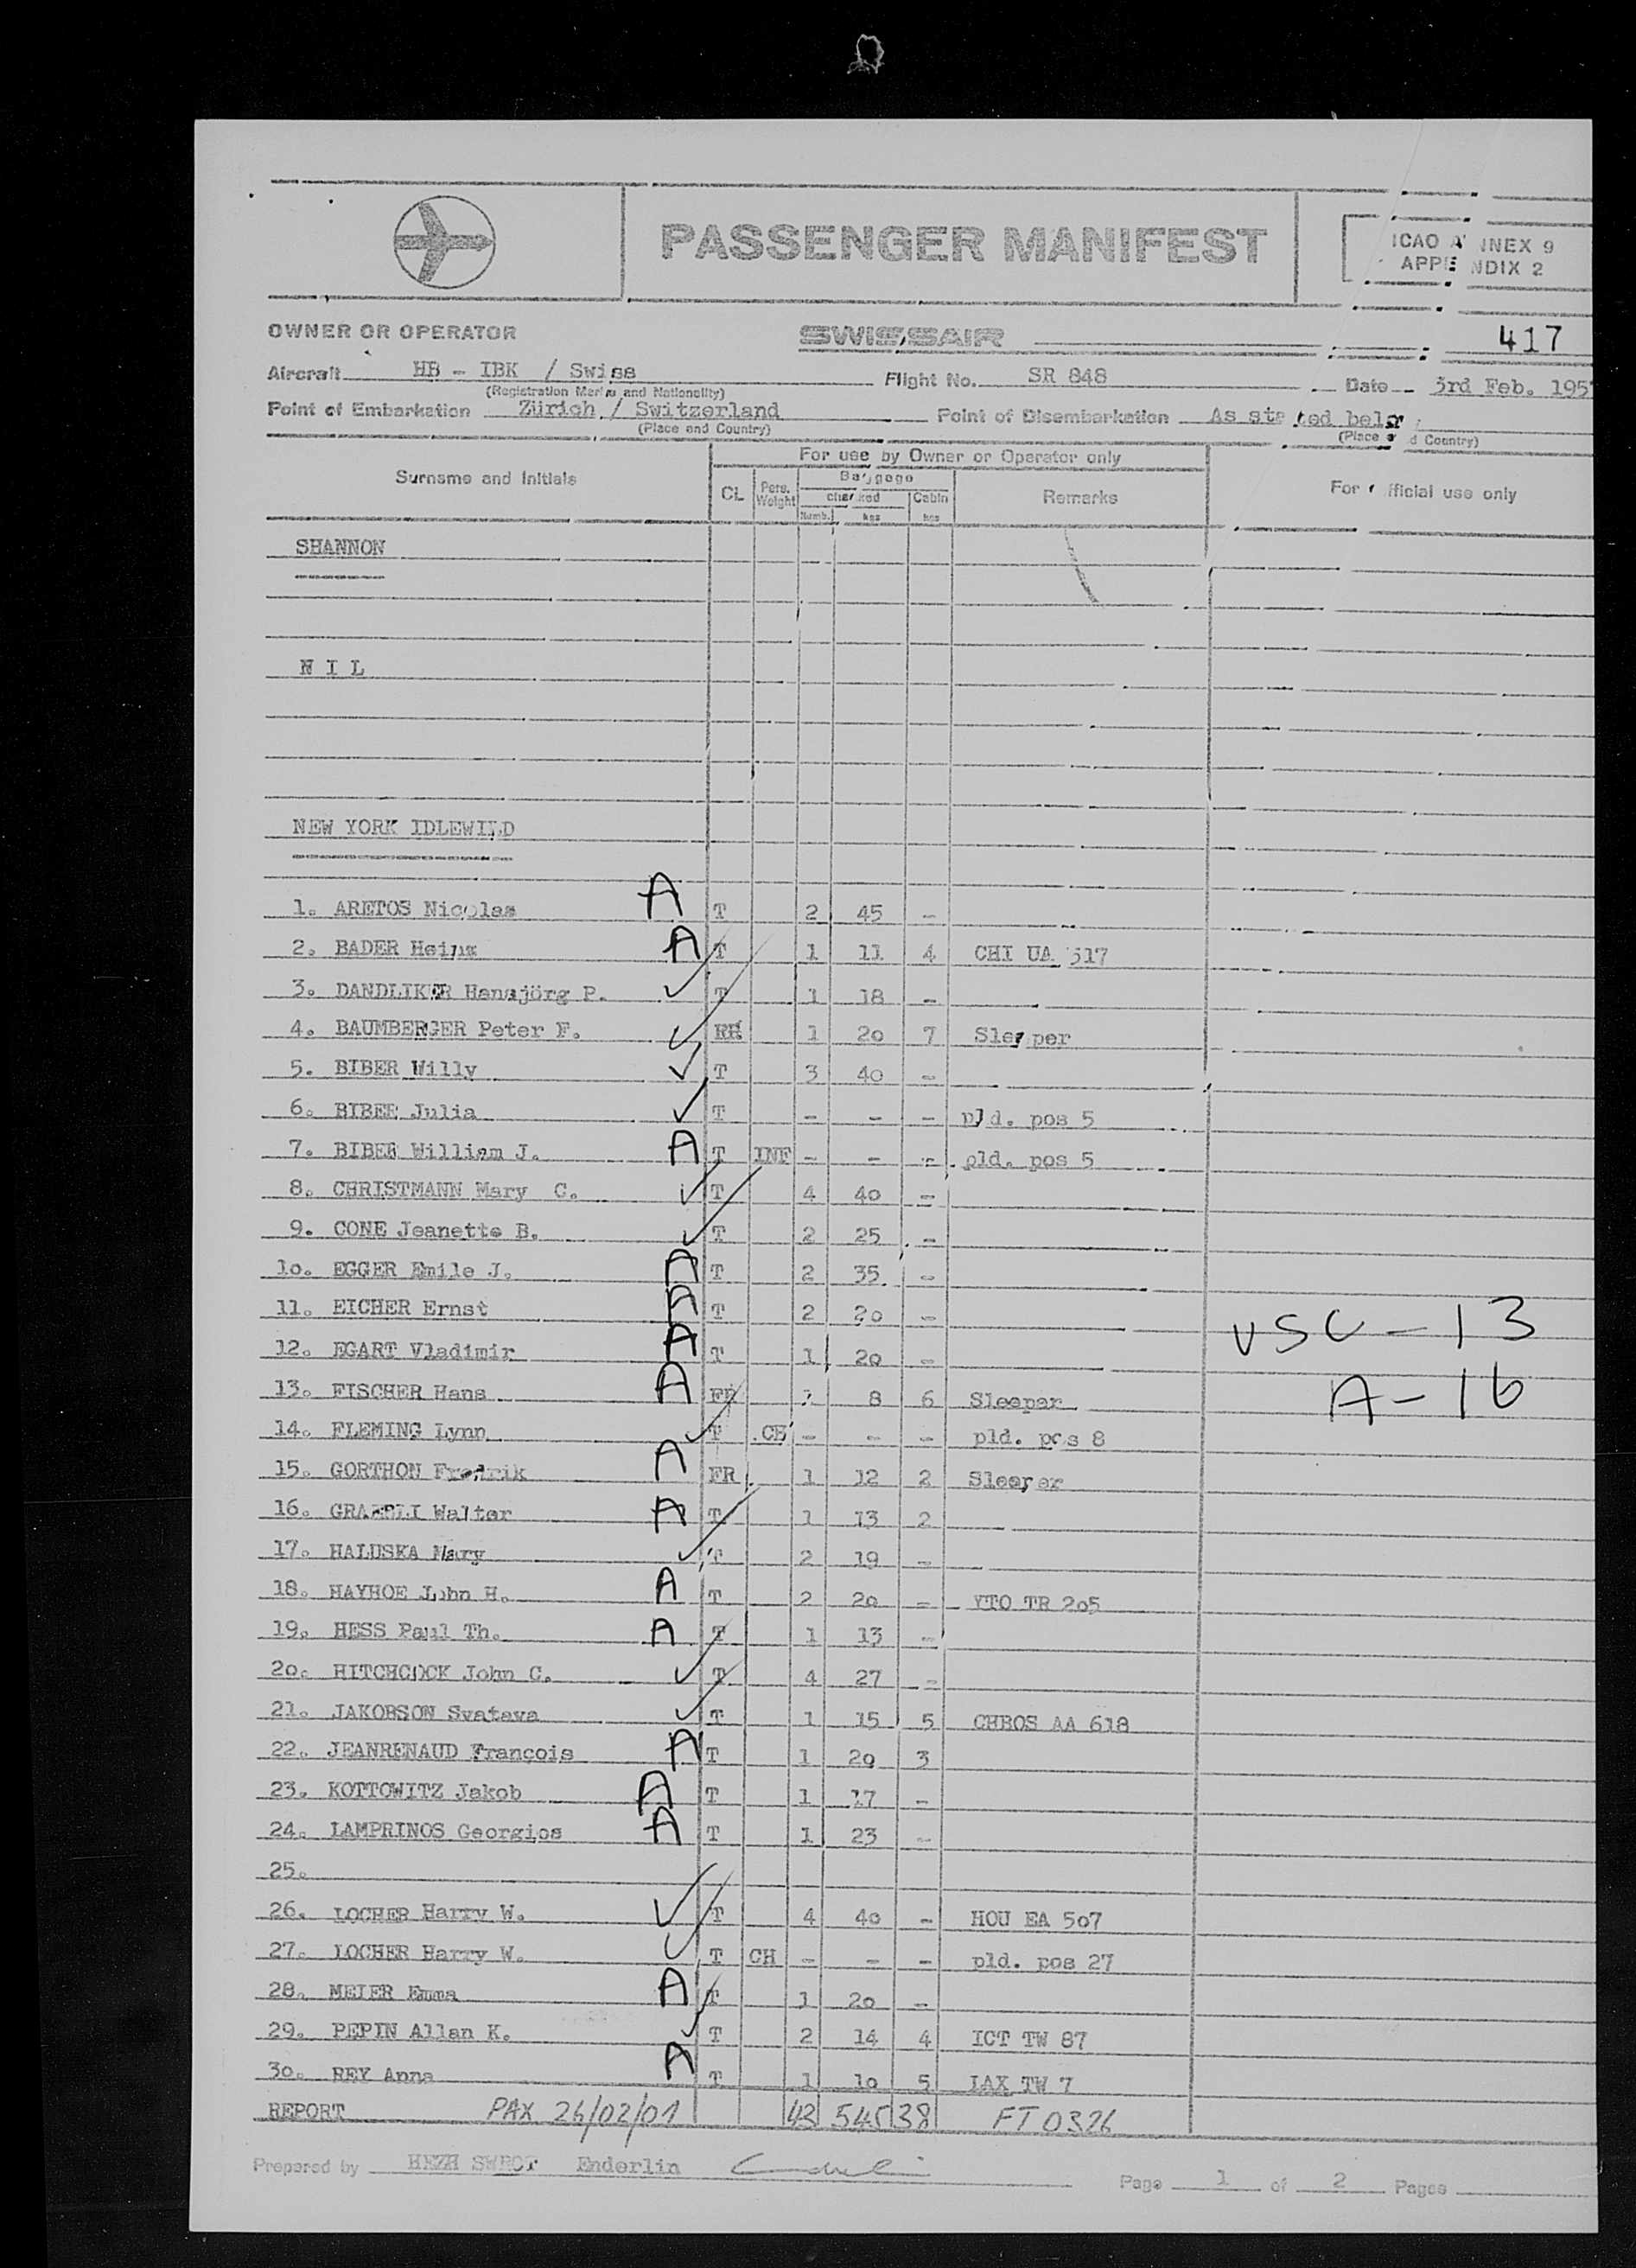 PASSENGER MANIFEST
ICAO ANNEX 9
APPENDIX 2
OWNER OR OPERATOR SWISSAIR 417
Aircraft HB - IBK / Swiss Flight No. SR 848 Date 3rd Feb. 195
(Registration Marks and Nationality)
Point of Embarkation Zürich / Switzerland Point of Disembarkation As stated below
(Place and Country) (Place and Country)
For use by Owner or Operator only
Surname and Initials CL Pers. Weight Baggage Remarks For official use only
checked Cabin
Numb. kgs kgs
SHANNON
N I L
NEW YORK IDLEWILD
1. ARETOS Nicolas A T 2 45 -
2. BADER Heinz A T 1 11 4 CHI UA 517
3. DANDLIKER Hansjörg P. ✓ T 1 18 -
4. BAUMBERGER Peter F. ✓ FR 1 20 7 Sleeper
5. BIBER Willy ✓ T 3 40 -
6. BIBER Julia ✓ T - - - pld. pos 5
7. BIBER William J. A T INF - - - pld. pos 5
8. CHRISTMANN Mary C. ✓ T 4 40 -
9. CONE Jeanette B. ✓ T 2 25 -
10. EGGER Emile J. A T 2 35 -
11. EICHER Ernst A T 2 20 -
12. EGART Vladimir A T 1 20 -
USC - 13
13. FISCHER Hans A FR 8 6 Sleeper
A - 16
14. FLEMING Lynn ✓ T CH - - - pld. pos 8
15. GORTHON Fredrik A FR 1 12 2 Sleeper
16. Walter A T 1 13 2
17. HALUSKA Mary ✓ T 2 19 -
18. HAYHOE John H. A T 2 20 - YTO TR 205
19. HESS Paul Th. A T 1 13 -
20. HITCHCOCK John C. ✓ T 4 27 -
21. JAKOBSON Svatava ✓ T 1 15 5 CHBOS AA 618
22. JEANRENAUD François A T 1 20 3
23. KOTTOWITZ Jakob A T 1 17 -
24. LAMPRINOS Georgios A T 1 23 -
25.
26. LOCHER Harry W. ✓ T 4 40 - HOU EA 507
27. LOCHER Harry W. ✓ T CH - - - pld. pos 27
28. MEIER Emma A T 1 20 -
29. PEPIN Allan K. ✓ T 2 14 4 ICT TW 87
30. REY Anna A T 1 10 5 LAX TW 7
REPORT PAX 26/02/01 43 545 38 FT 0326
Prepared by Enderlin
Page 1 of 2 Pages